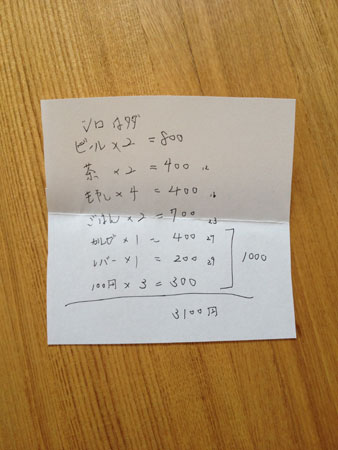 ビール×2 = 800
茶 ×2 = 400 12
もやし×4 = 400 16
ごはん×2 = 700 23
カルビ×1 = 400 27
レバー×1 = 200 29
1000
100円×3 = 300
3100円